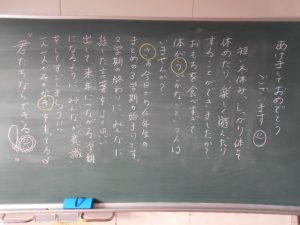 あけましておめでとう
ございます
短い冬休み、しっかり体を
休めたり、楽しく遊んだり
することができましたか?
おもちを食べすぎて
体が
いませんか?
今日から4年生の
まとめの3学期の始まりです。
2学期の終わりに、みんなに
話した言葉をよく思い
出して、未来につながる3学期
になるように、みんなが意識
をしていきましょう!!
一人一人が
君たちならできる